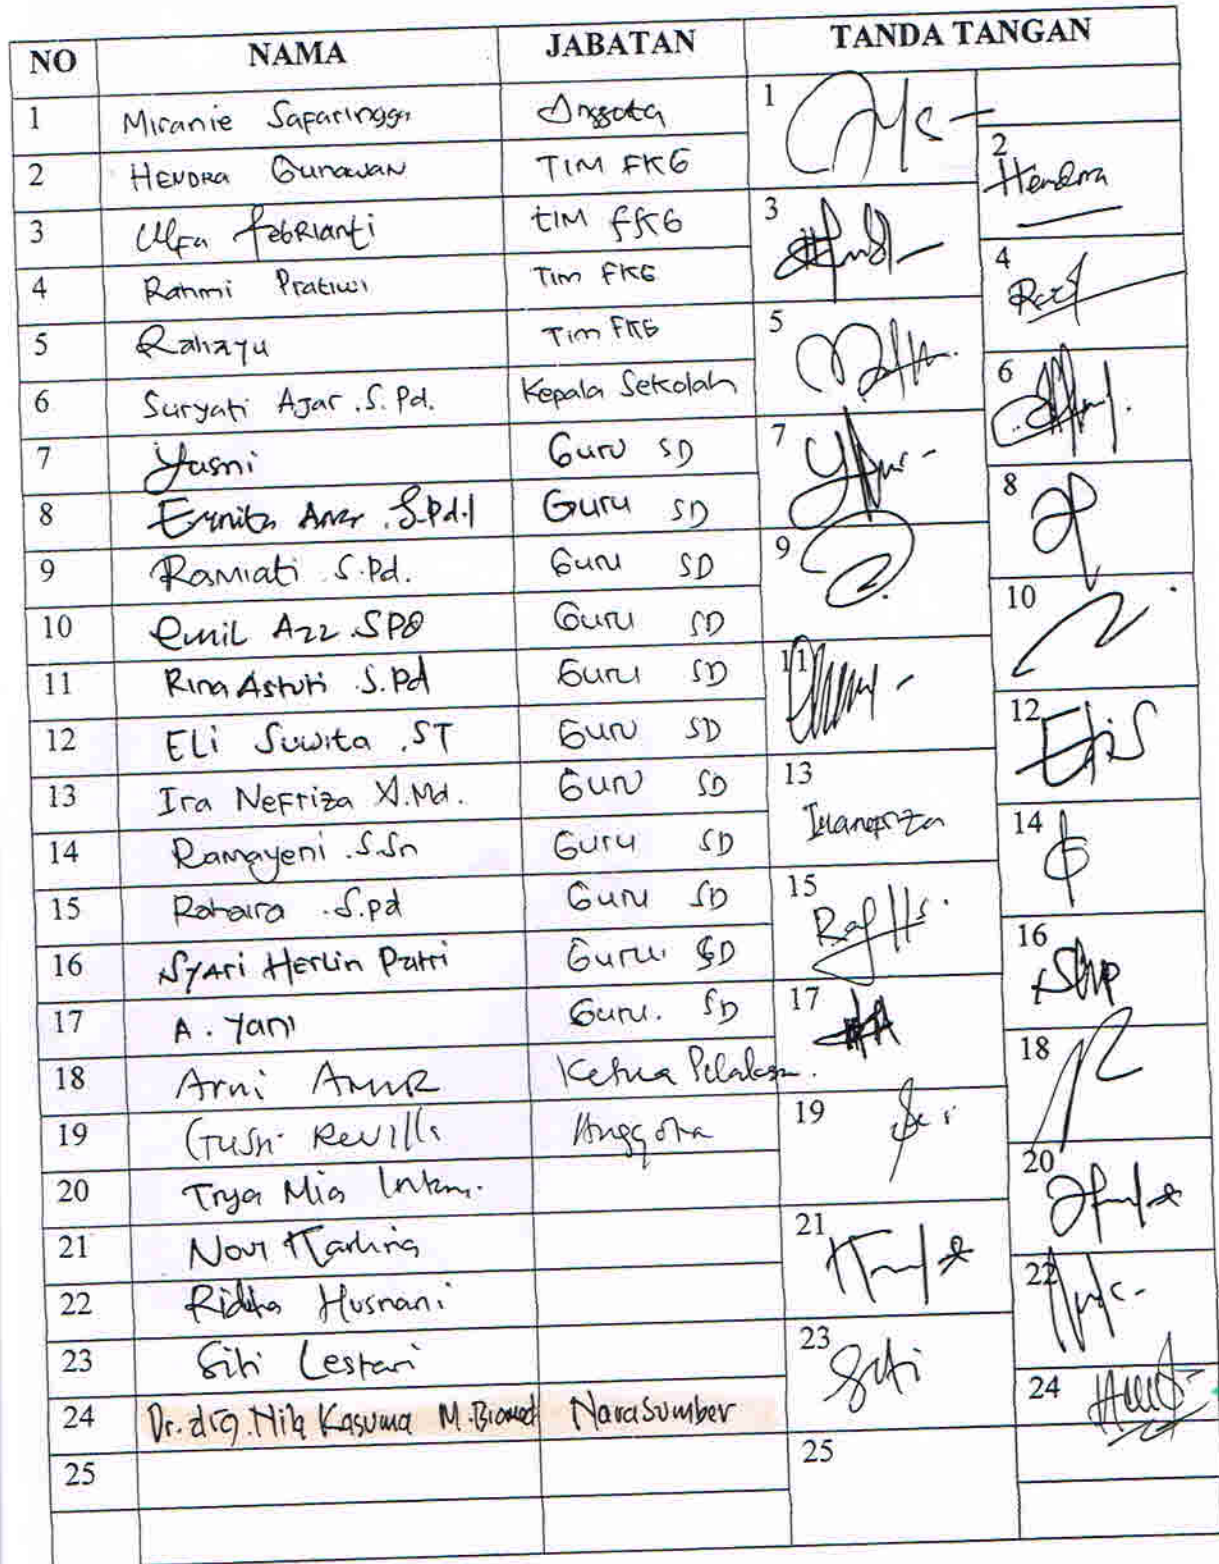 NO NAMA JABATAN TANDA TANGAN
1 Miranie Safaringga Anggota 1
2 HENDRA Gunawan TIM FKG 2 Hendra
3 Ulfa Febrianti TIM FKG 3
4 Rahmi Pratiwi Tim FKG 4
5 Rahayu Tim FKG 5
6 Suryati Ajar .S.Pd. Kepala Sekolah 6
7 Yasni Guru SD 7
8 Ernita .S.Pd.I Guru SD 8
9 Ramiati S.Pd. Guru SD 9
10 Emil Azz .SPD Guru SD 10
11 Rina Astuti .S.Pd Guru SD 11
12 ELi Suwita .ST Guru SD 12 EliS
13 Ira Nefriza A.Md. Guru SD 13 Iranefriza
14 Ramayeni .S.Sn Guru SD 14
15 .S.pd Guru SD 15
16 Syari Herlin Putri Guru SD 16
17 A. Yani Guru. SD 17
18 Arni Amir Ketua 18
19 Gusti Revilla Anggota 19
20 Trya Mia 20
21 Novi Karlina 21
22 Ridha Husnani 22
23 Siti Lestari 23 Siti
24 Dr. drg. Nila Kasuma M.Biomed Narasumber 24
25 25